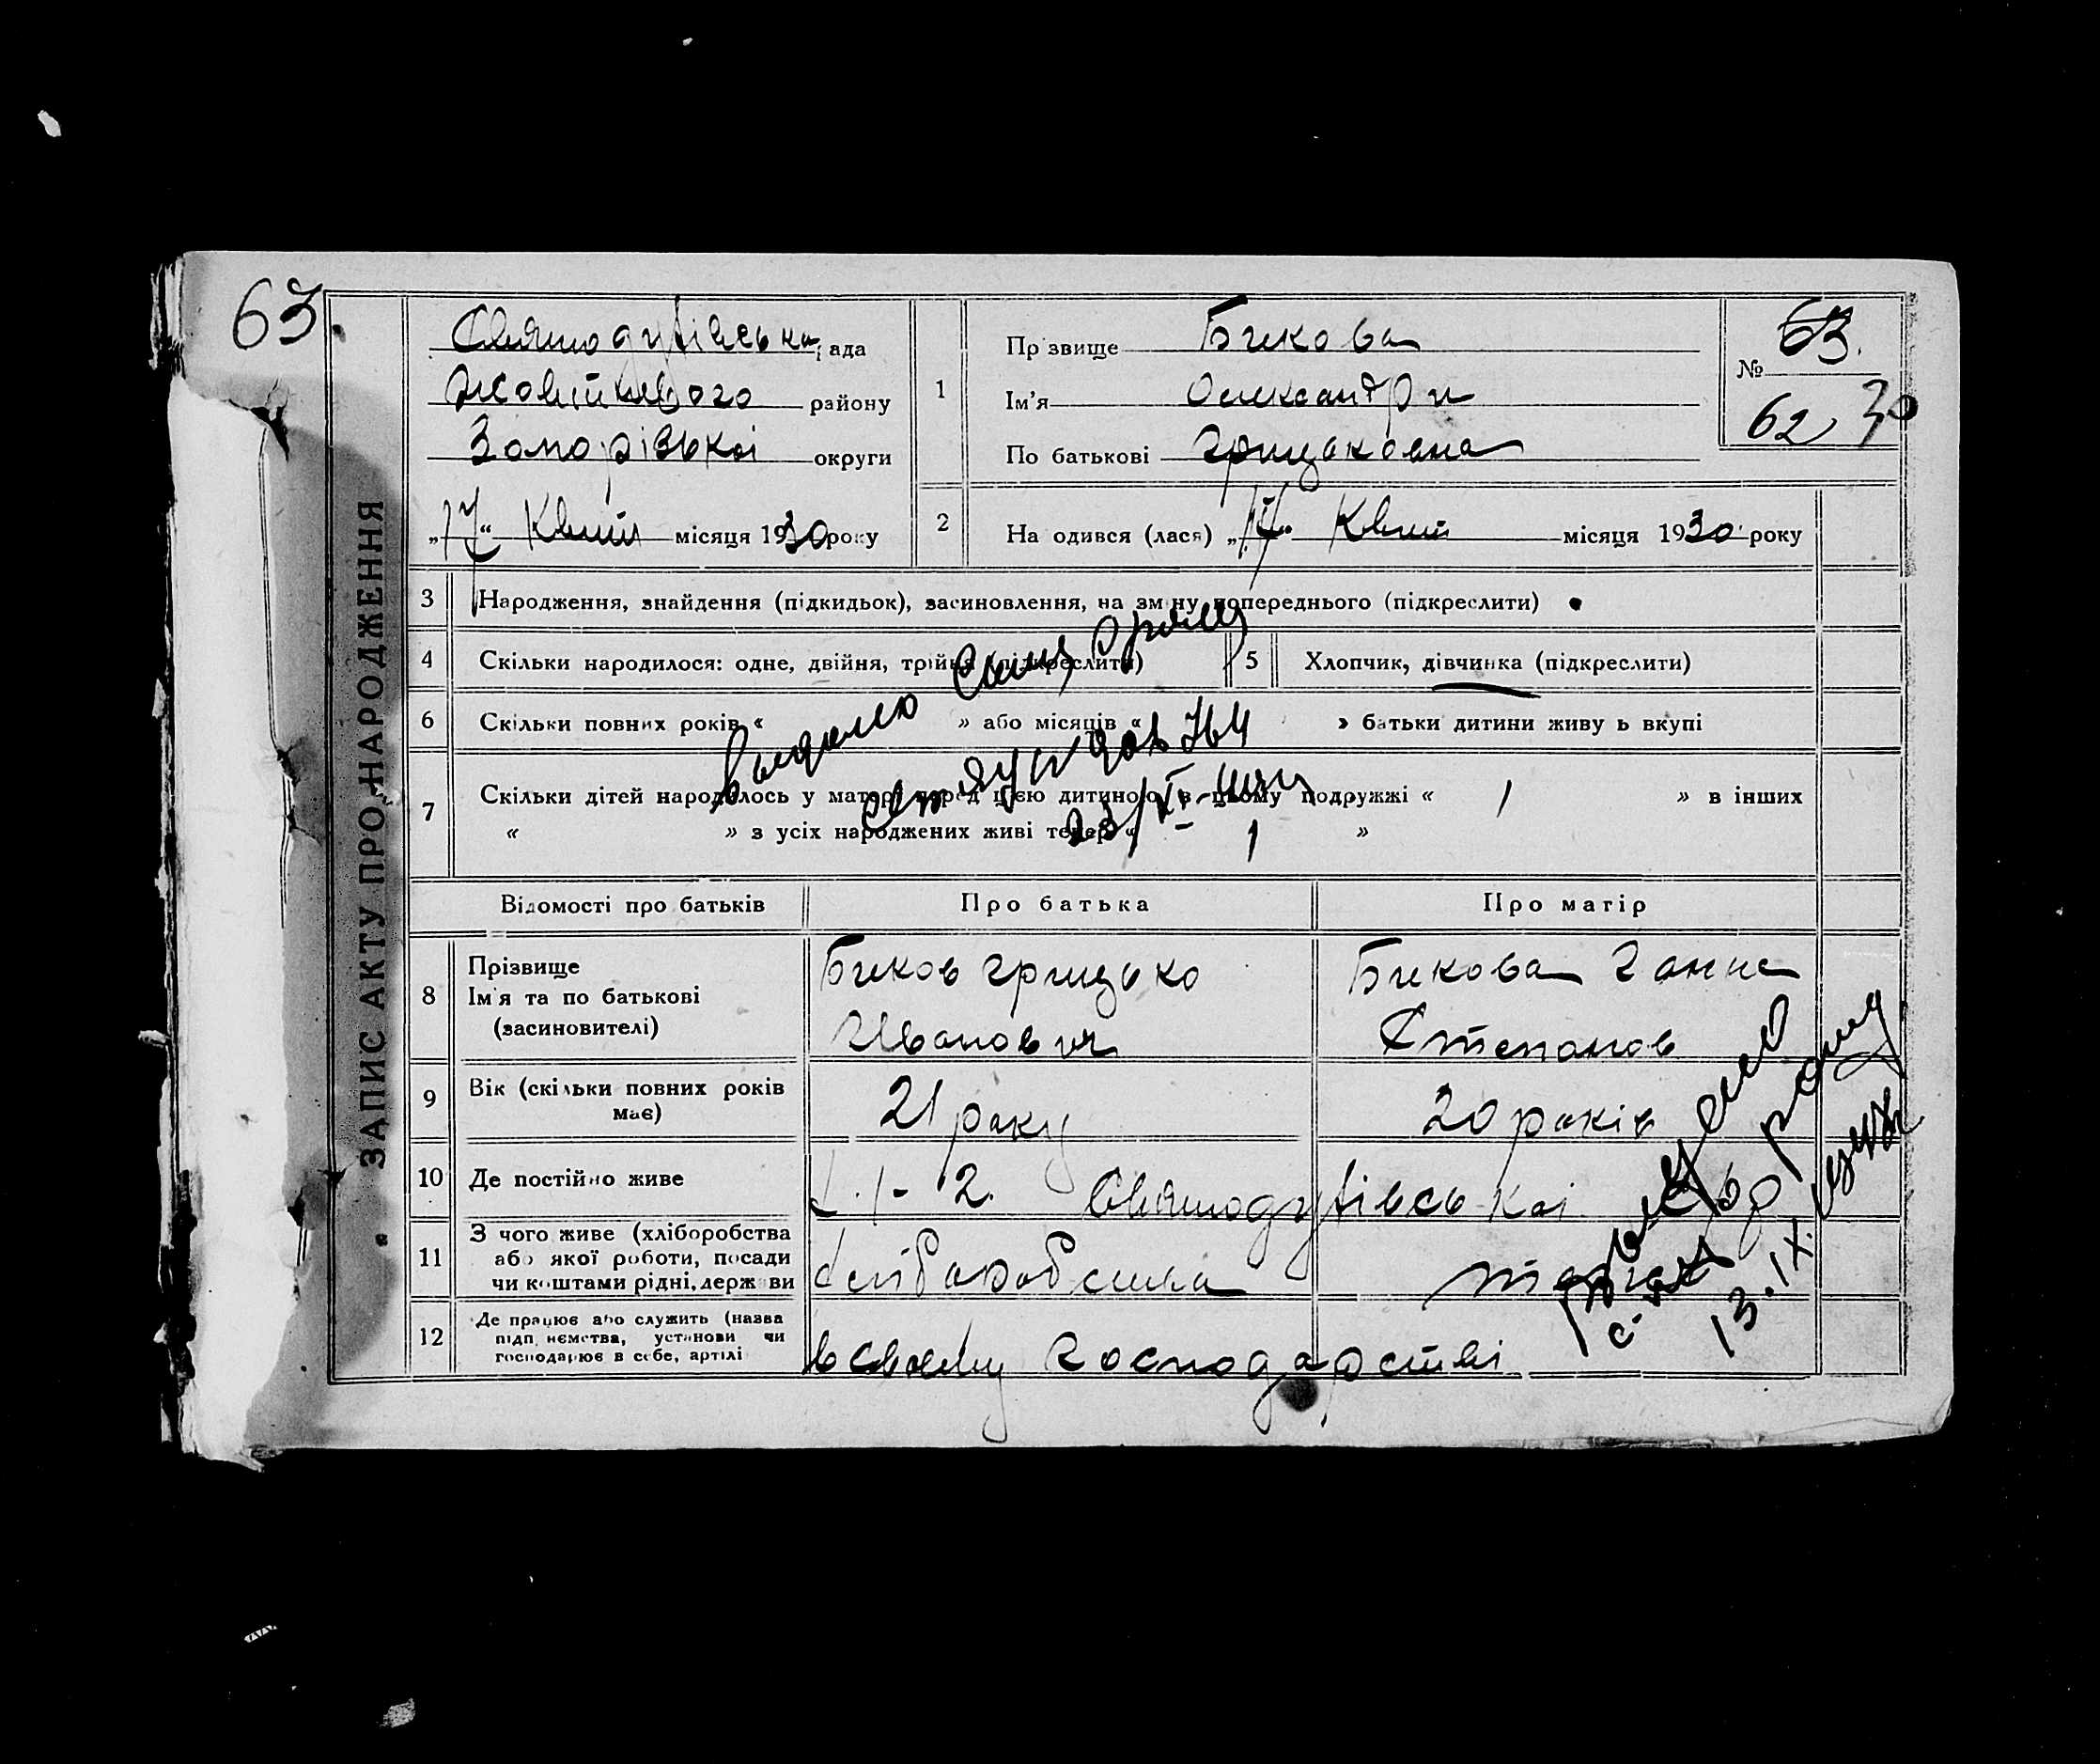 63.
ЗАПИС АКТУ ПРО НАРОДЖЕННЯ
Святодухівська рада
району
Запорізької округи
„17“ Квіт місяця 1930 року
1
Прізвище Бикова
Ім'я Олександри
По батькові Грицьковна
№ 63.
62 30
2
На одився (лася) „ Квіт місяця 1930 року
3 Народження, знайдення (підкидьок), засиновлення, на зм ну попереднього (підкреслити)
4 Скільки народилося: одне, двійня, трійня (підкреслити)
5 Хлопчик, дівчинка (підкреслити)
6 Скільки повних років « » або місяців « » батьки дитини живу ь вкупі
7 Скільки дітей народилось у матері перед цією дитиною в цьому подружжі « 1 » в інших
« » з усіх народжених живі тепер « 1 »
Відомості про батьків
Про батька
Про матір
8 Прізвище
Ім'я та по батькові
(засиновителі)
Биков Грицько
Иванович
Бикова Ганна
Степанов
9 Вік (скільки повних років
має)
21 року
20 років
10 Де постійно живе
2. Святодухівської
11 З чого живе (хліборобства
або якої роботи, посади
чи коштами рідні, держави
Хліборобства
12 Де працює або служить (назва
підп иємства, установи чи
господарює в себе, артілі
в своєму господарстві
13.IX.